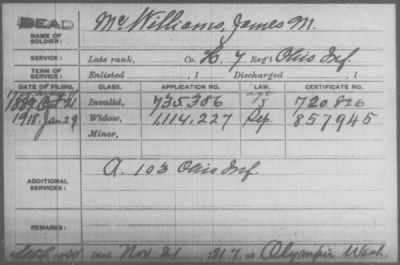 DEAD
NAME OF SOLDIER:
McWilliams, James M.
SERVICE:
Late rank, Co. K, 7 Reg't Ohio Inf.
TERM OF SERVICE:
Enlisted , 1 Discharged , 1
DATE OF FILING. CLASS. APPLICATION NO. LAW. CERTIFICATE NO.
1889 Oct 21 Invalid, 735,356 720,826
1918 Jan 29 Widow, 1114,227 Sep. 857945
Minor,
ADDITIONAL SERVICES:
A. 103 Ohio Inf.
REMARKS:
Died Nov 21, 917, at Olympia Wash.